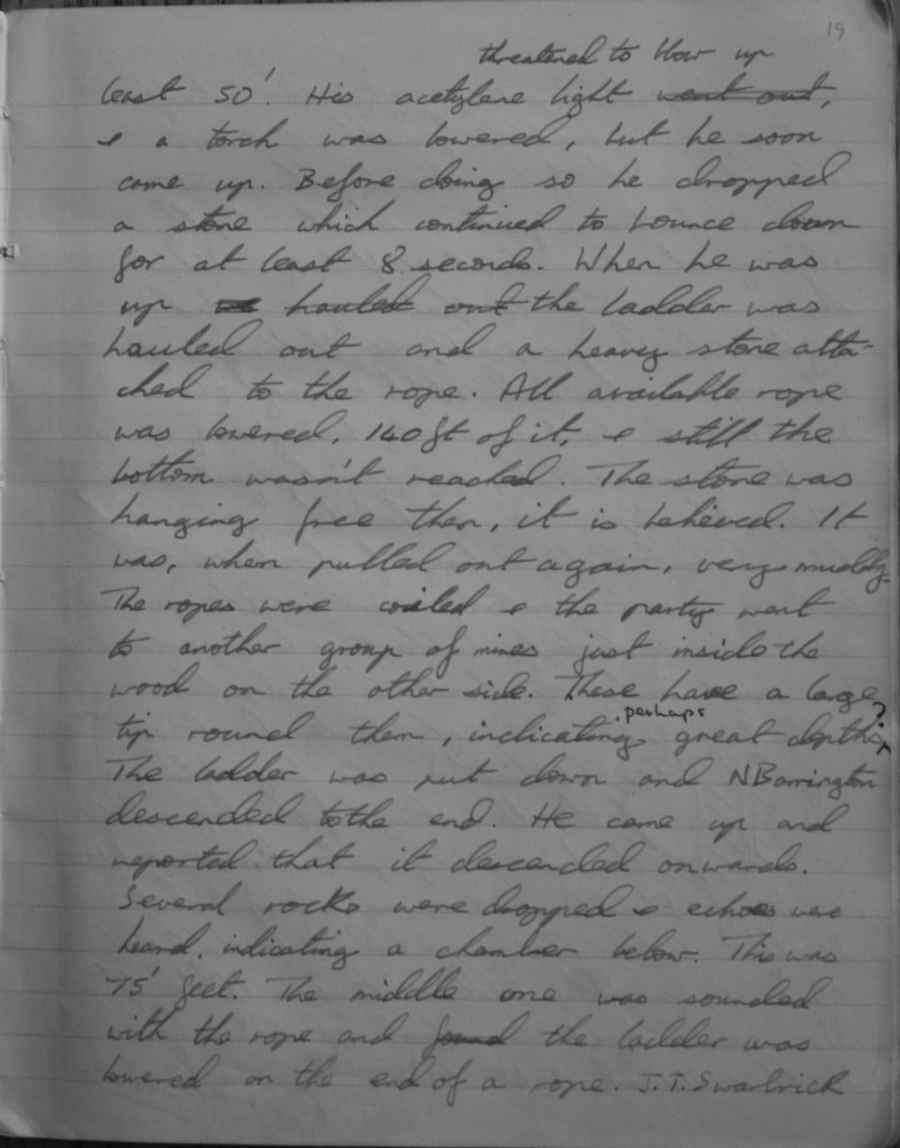 19
threatened to blow up
least 50'. His acetylene light went out,
& a torch was lowered, but he soon
came up. Before doing so he dropped
a stone which continued to bounce down
for at least 8 seconds. When he was
up hauled out the ladder was
hauled out and a heavy stone atta-
ched to the rope. All available rope
was lowered, 140ft of it, & still the
bottom wasn't reached. The stone was
hanging free then, it is believed. It
was, when pulled out again, very muddy.
The ropes were coiled & the party went
to another group of mines just inside the
wood on the other side. These have a large
perhaps ?
tip round them, indicating great depths.
The ladder was put down and N Barrington
descended to the end. He came up and
reported that it descended onwards.
Several rocks were dropped & echoes were
heard, indicating a chamber below. This was
75' feet. The middle one was sounded
with the rope and found the ladder was
lowered on the end of a rope. J.T. Swarbrick